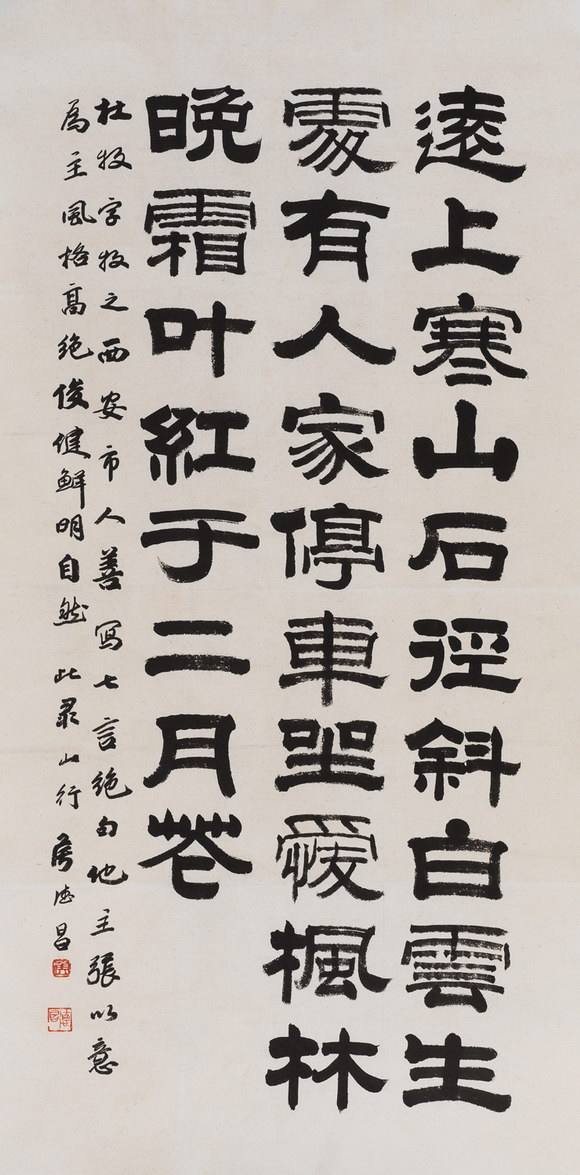 遠上寒山石徑斜白雲生
處有人家停車坐愛楓林
晚霜叶紅于二月花
杜牧字牧之西安市人善寫七言絕句他主張以意
為主風格高絕俊健鮮明自然 此录山行 房德昌